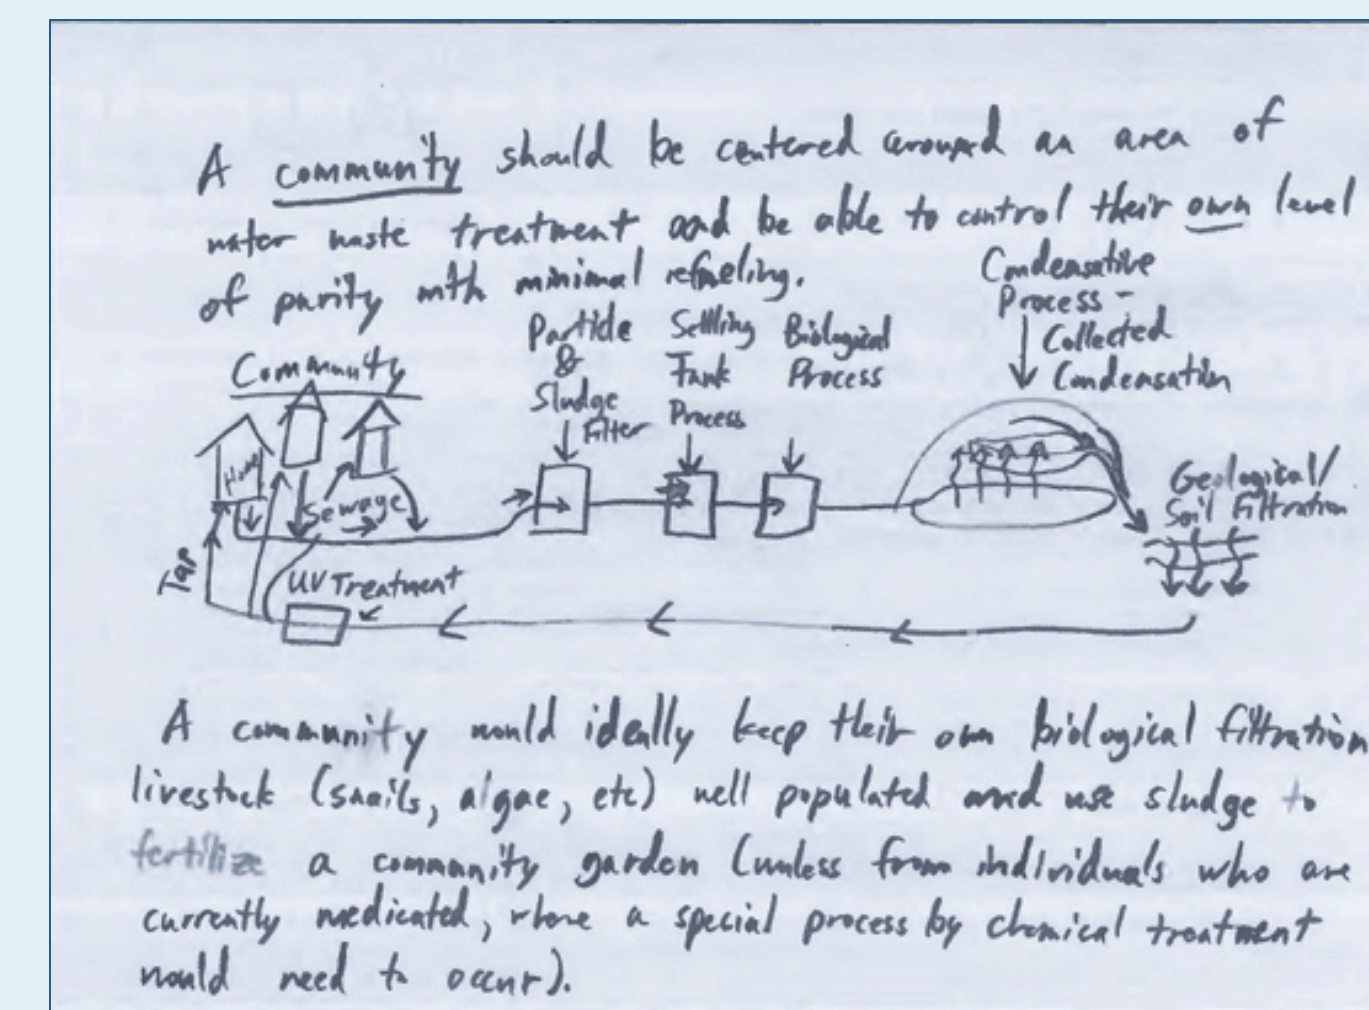 A community should be centered around an area of
water waste treatment and be able to control their own level
of purity with minimal refueling.
Condensative
Process -
Collected
Condensation
Particle
&
Sludge
Filter
Settling
Tank
Process
Biological
Process
Community
Home
Sewage
Geological/
Soil Filtration
Tap
UV Treatment
A community would ideally keep their own biological filtration
livestock (snails, algae, etc) well populated and use sludge to
fertilize a community garden (unless from individuals who are
currently medicated, where a special process by chemical treatment
would need to occur).